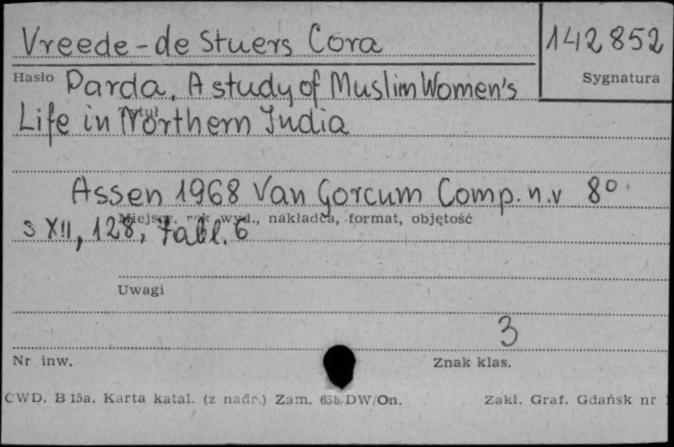 Vreede-de Stuers Cora
142852
Hasło
Sygnatura
Parda. A study of Muslim Women's
Life in Northern India
Tytuł
Assen 1968 Van Gorcum Comp. n.v 8°
Miejsce, rok wyd., nakładca, format, objętość
s XII, 128, Tabl. 6
Uwagi
3
Nr inw.
Znak klas.
CWD. B 15a. Karta katal. (z nadr.) Zam. 658/DW/On.
Zakl. Graf. Gdańsk nr